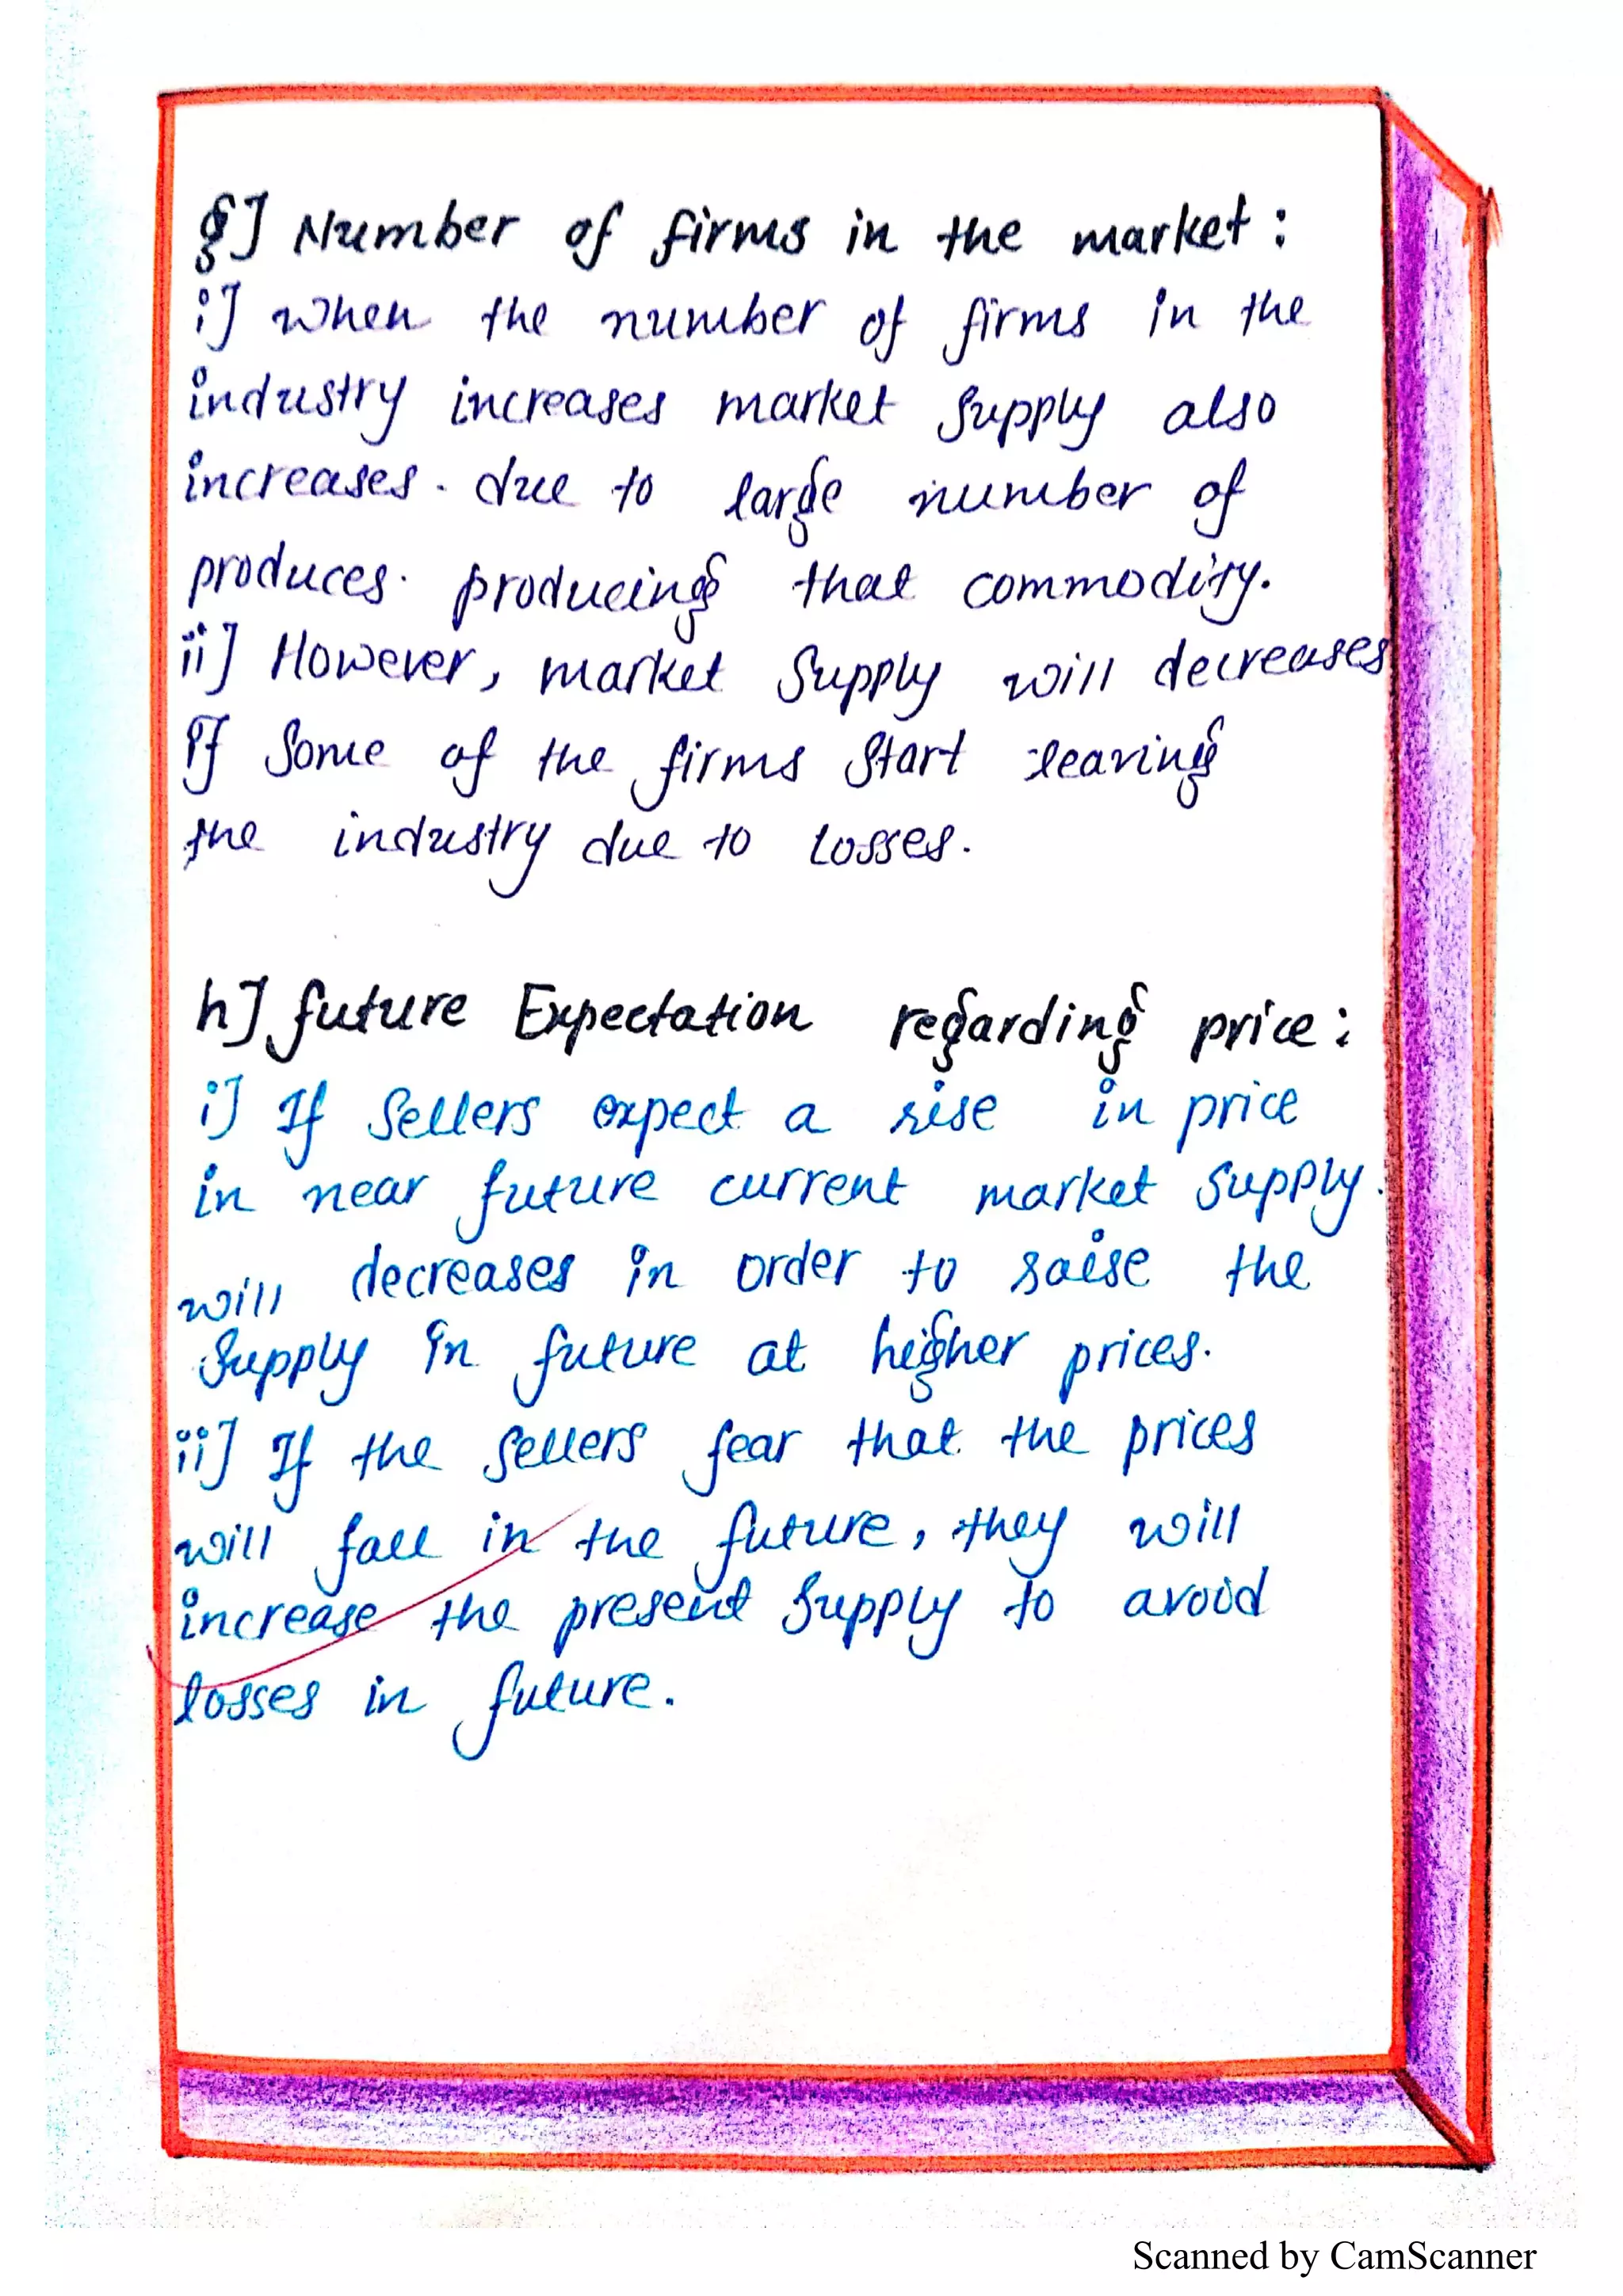 g] Number of firms in the market :
i] When the number of firms in the
industry increases market supply also
increases. due to large number of
produces. producing that commodity.
ii] However, market supply will decreases
if some of the firms start leaving
the industry due to losses.
h] future Expectation regarding price :
i] If sellers expect a rise in price
in near future current market supply.
will decreases in order to raise the
supply in future at higher prices.
ii] If the sellers fear that the prices
will fall in the future, they will
increase the present supply to avoid
losses in future.
Scanned by CamScanner